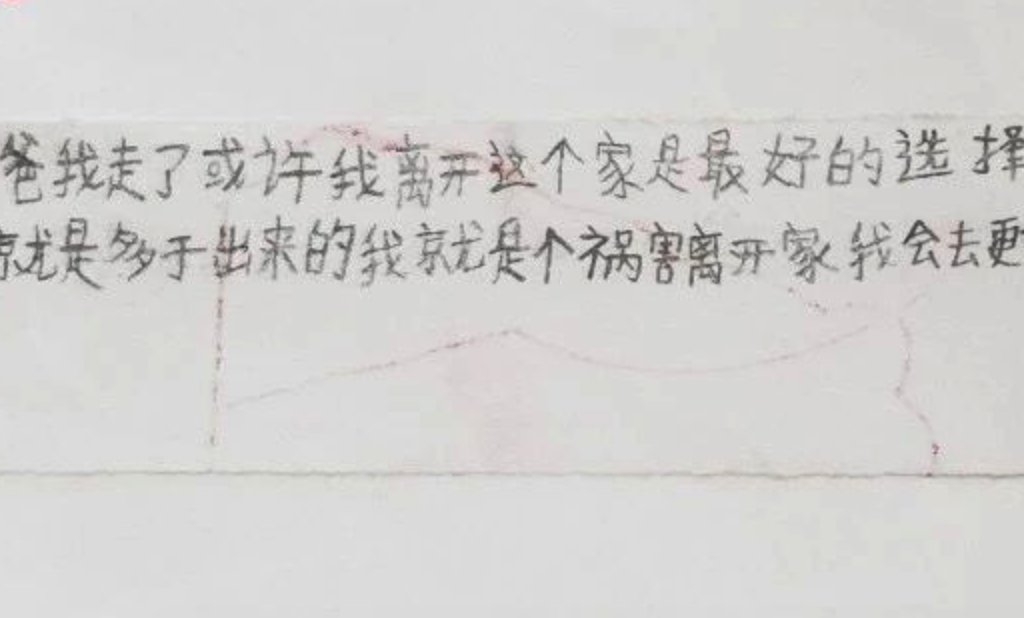 爸我走了或许我离开这个家是最好的选择
就是多于出来的我就是个祸害离开家我会去更